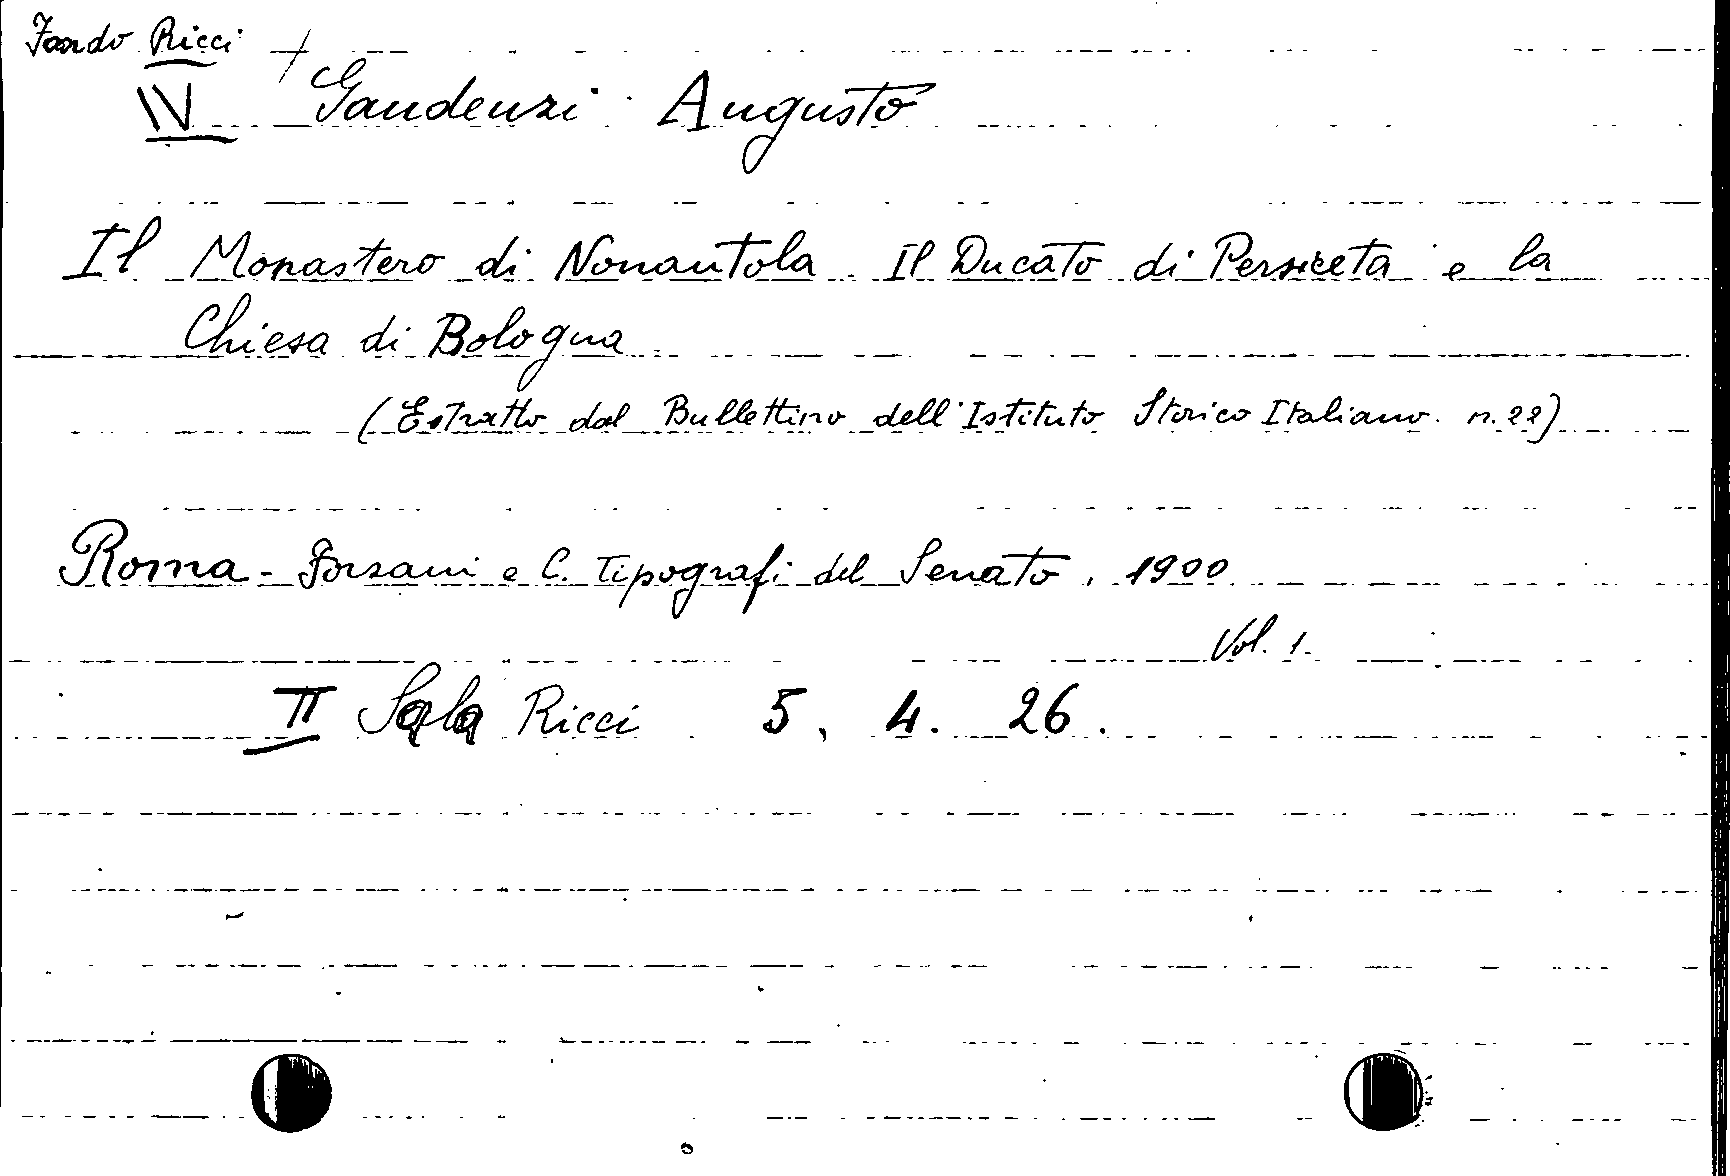 Fondo Ricci
IV Gaudenzi Augusto
Il Monastero di Nonantola. Il Ducato di Persiceta e la
Chiesa di Bologna
(Estratto dal Bullettino dell'Istituto Storico Italiano. n. 22)
Roma - Forzani e C. Tipografi del Senato, 1900
Vol. 1.
II Sala Ricci 5. 4. 26.